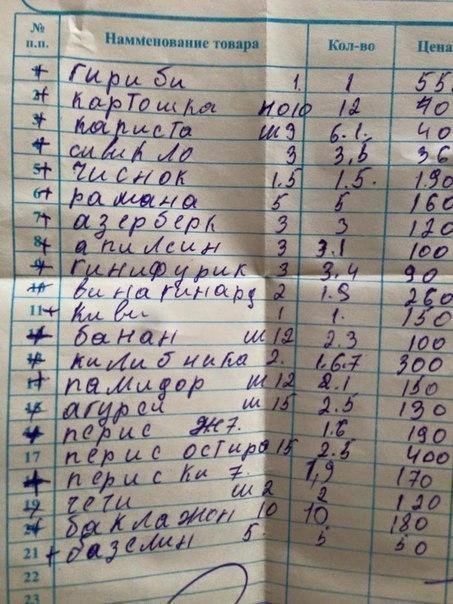 № п.п. Намменование товара Кол-во Цена
1 гириби 1. 1 55.
2 картошка 10 12 40
3 кариста ш 9 6.1. 40
4 сивикло 3 3,5 36
5 чиснок 1.5 1.5. 190
6 рамана 5 5 160
7 азерберк 3 3 120
8 апилсин 3 3.1 100
9 гинифурик 3 3,4 90
10 винагинард 2 1.9 260
11 киви 1 1. 150
12 банан ш 12 2.3 100
13 килибника 2. 1.6.7 300
14 памидор ш 12 2.1 150
15 агурси ш 15 2.5 130
16 перис ж 7. 1.6 190
17 перис остиро 15 2.5 400
18 перис ки 7. 1,9 170
19 чети ш 2 2 120
20 баклажен 10 10 180
21 базелин 5. 5 50
22
23